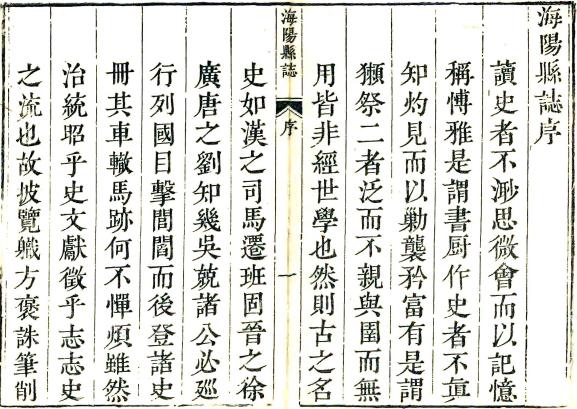 海陽縣誌序
讀史者不渺思微會而以記憶
稱愽雅是謂書厨作史者不眞
知灼見而以勦襲矜富有是謂
獺祭二者泛而不親與圉而無
用皆非經世學也然則古之名
海陽縣誌 序 一
史如漢之司馬遷班固晉之徐
廣唐之劉知幾吳兢諸公必廵
行列國目擊閭閻而後登諸史
冊其車轍馬跡何不憚煩雖然
治統昭乎史文獻徵乎志志史
之流也故披覽軄方褒誅筆削